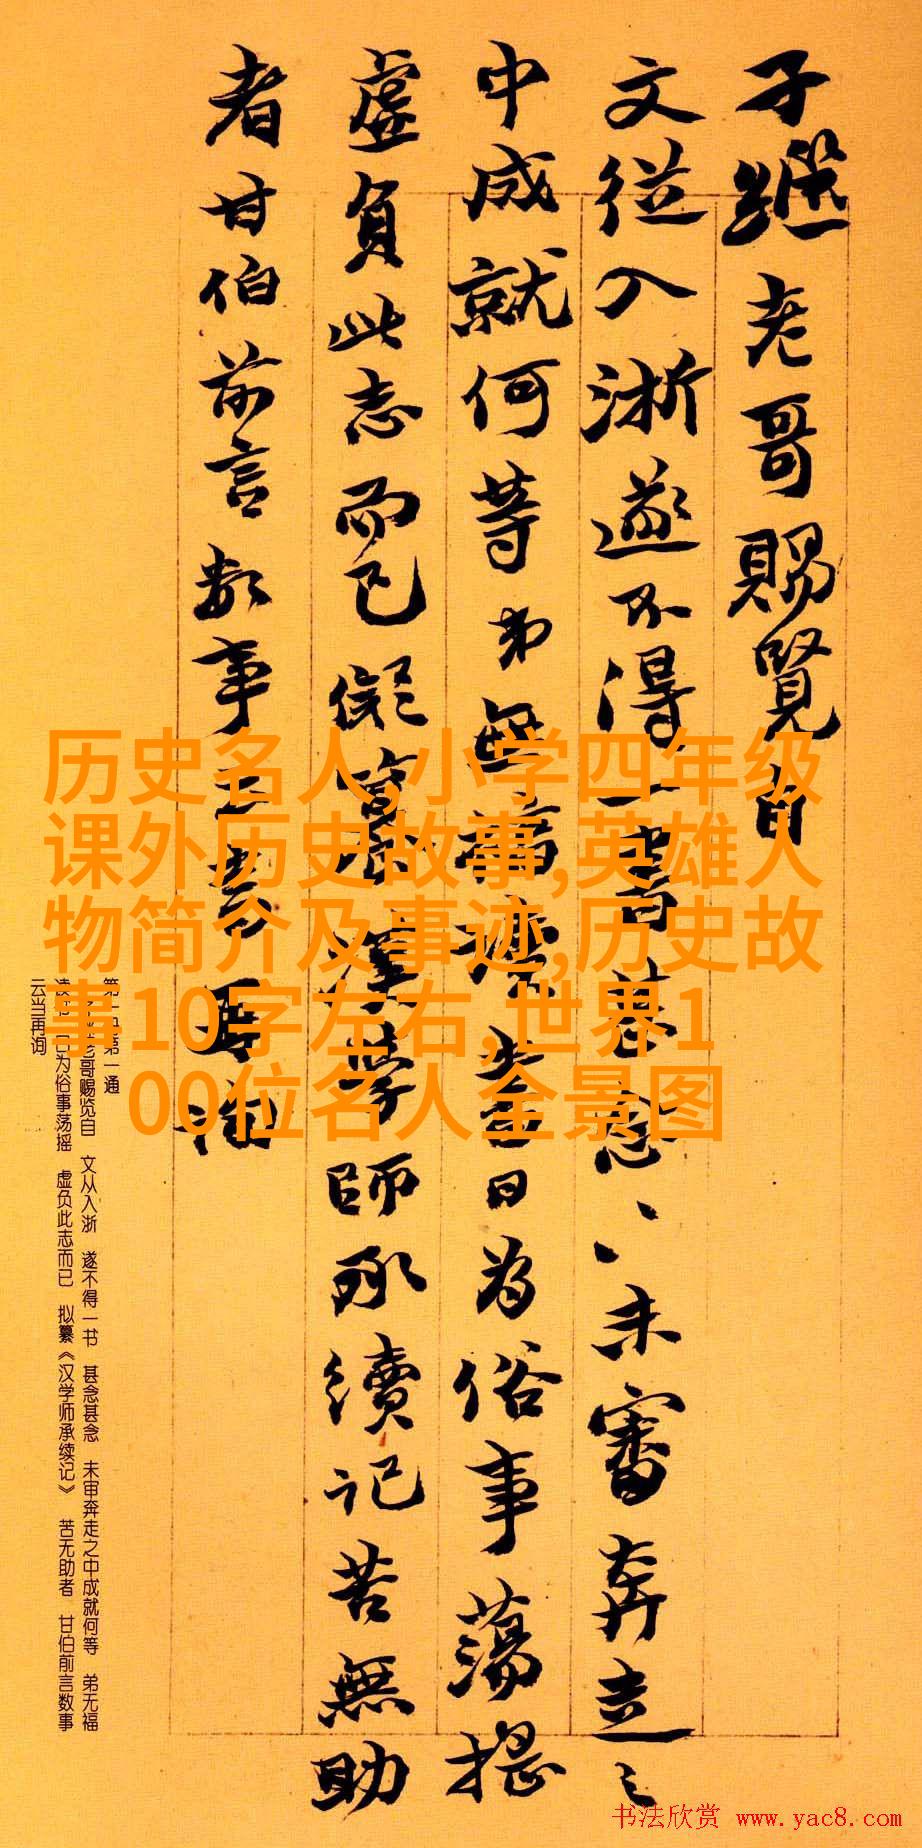 子繼老哥賜覽自
文從入浙遂不得一書甚念、、未審奔走之
中成就何等弟無福讀書日為俗事蕩摇
虛負此志而已儗篹漢學師承續記苦無助
者甘伯前言数事云當再詢
历史名人,小学四年级
课外历史故事,英雄人
物简介及事迹,历史故
事10字左右,世界1
00位名人全景图
第一 第一通
老哥赐览自 文从入浙 遂不得一书 甚念甚念 未审奔走之中成就何等 弟无福
读 日为俗事荡摇 虚负此志而已 拟纂《汉学师承续记》 苦无助者 甘伯前言数事
云当再询
书法欣赏 www.yac8.com